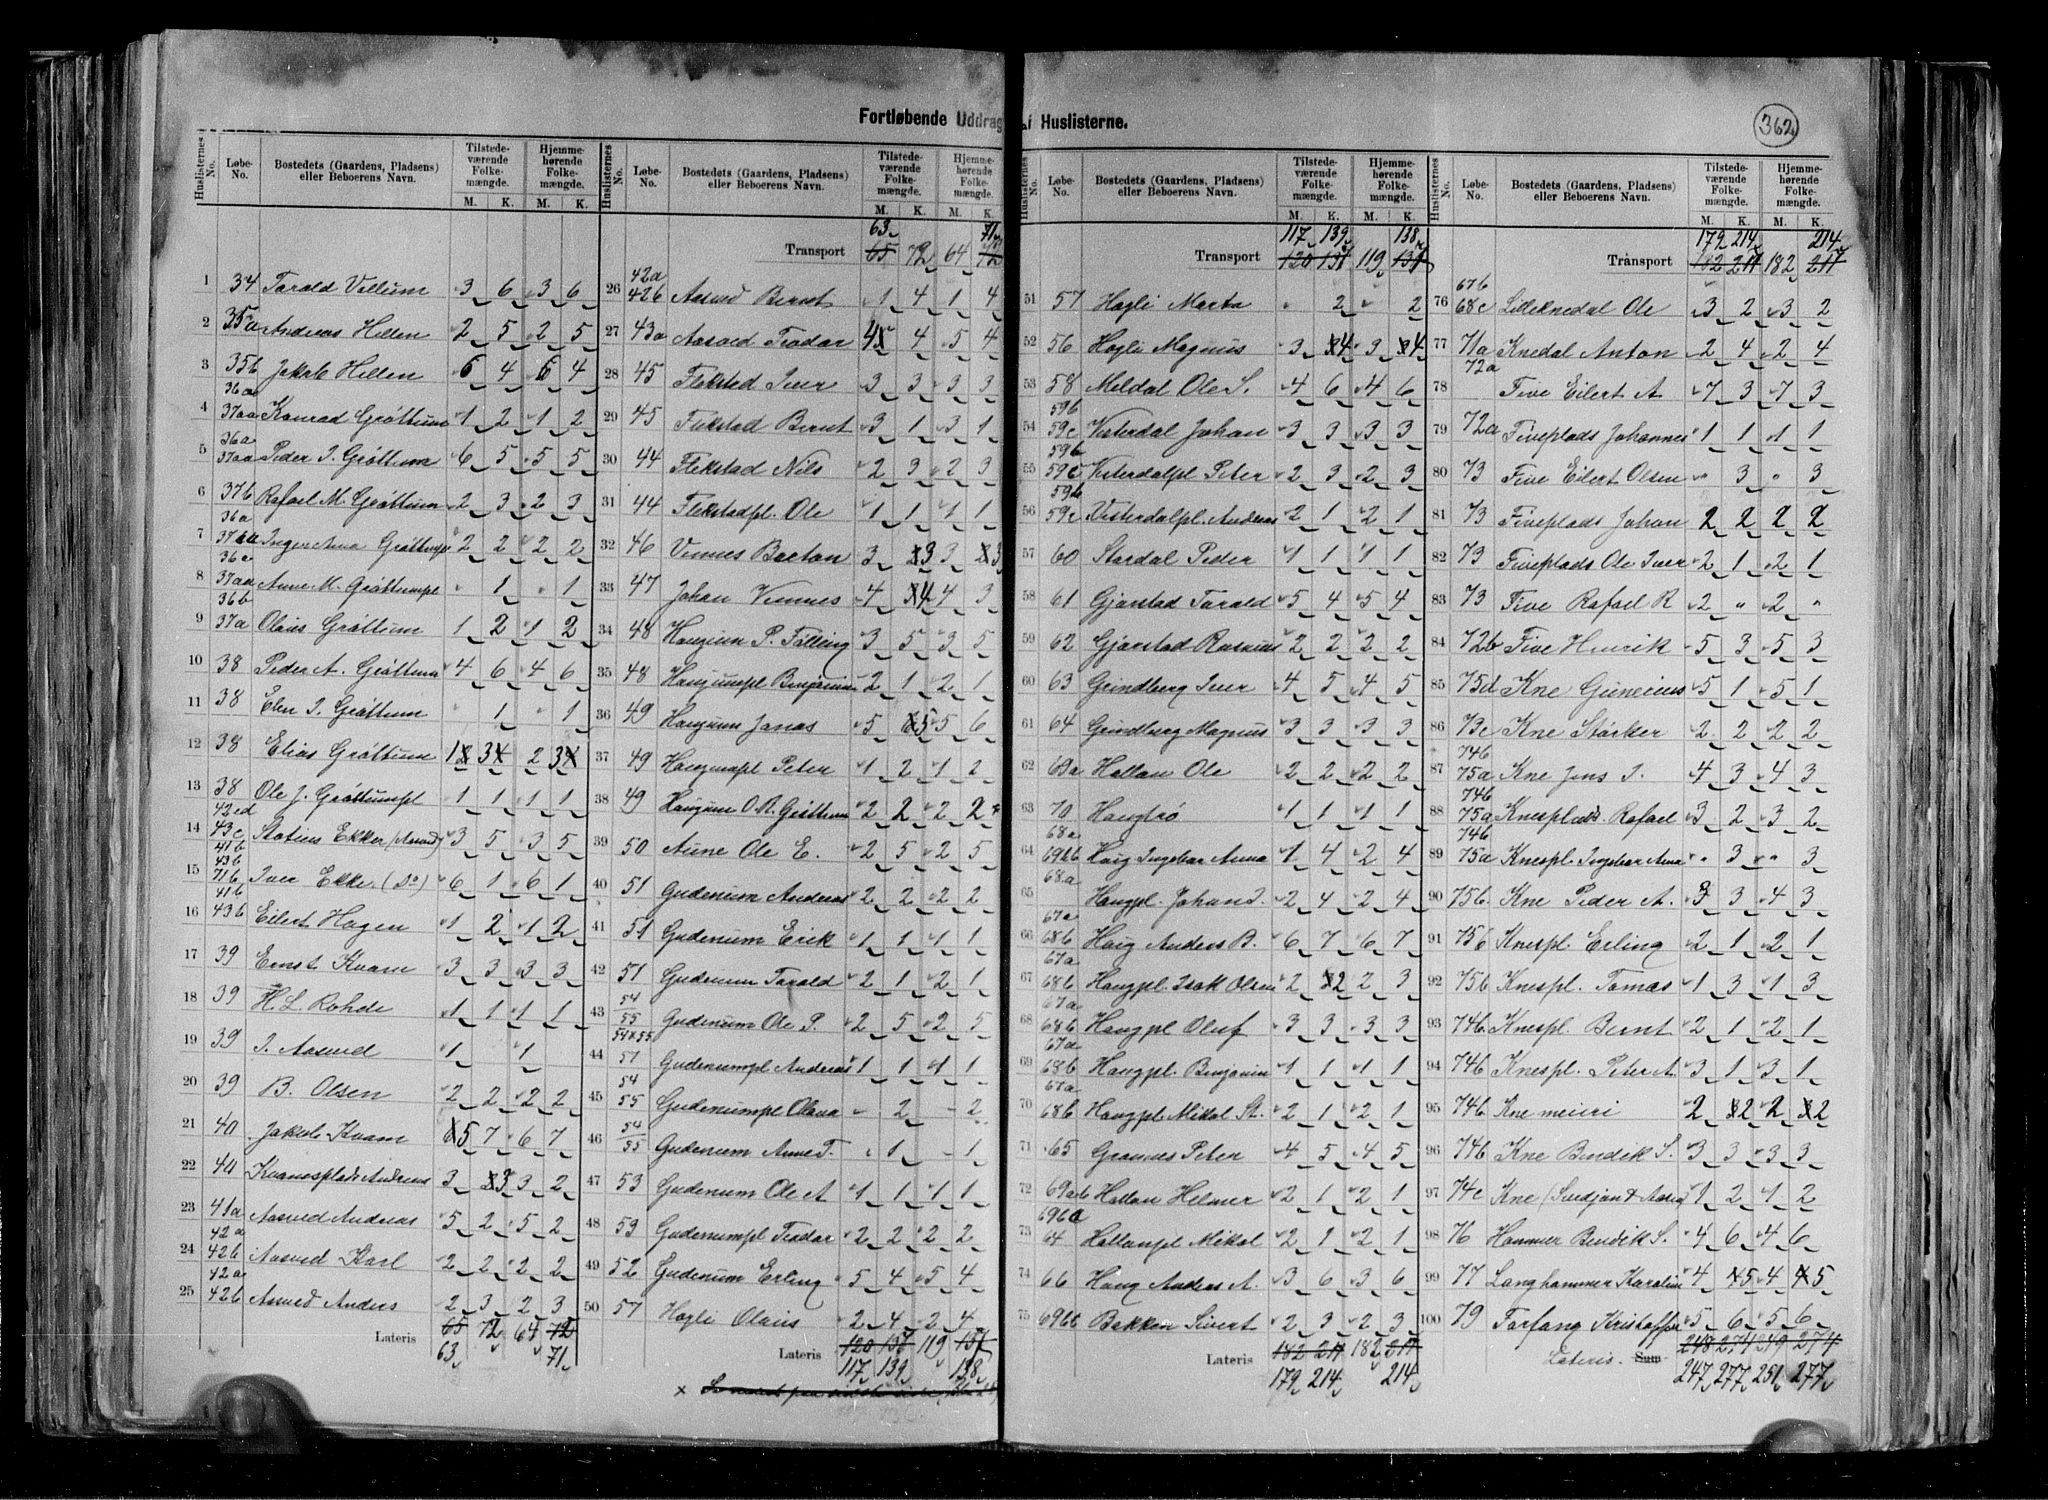 Fortløbende Uddrag af Huslisterne.
362
Huslisternes No. Løbe-No. Bostedets (Gaardens, Pladsens) eller Beboerens Navn. Tilstedeværende Folkemængde. M. K. Hjemmehørende Folkemængde. M. K.
1 34 Tarald Vellum 3 6 3 6
2 35a Andreas Hellen 2 5 2 5
3 35b Jakob Hellen 6 4 6 4
4 36a 37aa Konrad Gröttum 1 2 1 2
5 36a 37aa Peder J. Gröttum 6 5 5 5
6 37b Rafael M. Gröttum 2 3 2 3
7 36a Inger Anna Gröttumpl 2 2 2 2
8 36a 37aa Anne M. Gröttumpl " 1 " 1
9 36b 37a Olaus Gröttum 1 2 1 2
10 38 Peder A. Gröttum 4 6 4 6
11 38 Elen J. Gröttum " 1 " 1
12 38 Elias Gröttum 1 3 2 3
13 38 Ole J. Gröttumpl 1 1 1 1
14 42ed 43c Ekker (Aasved) 3 5 3 5
15 41b 43b 71b Iver Ekker (Do) 6 1 6 1
16 41b 43b Eilert Hagen 1 2 1 2
17 39 Ernst Kvam 3 3 3 3
18 39 H. L. Rohde 1 1 1 1
19 39 J. Aasved 1 1
20 39 B. Olsen 2 2 2 2
21 40 Jakob Kvam 5 7 6 7
22 40 Kvamsplads Andreas 3 3 3 2
23 41a Aasved Andreas 5 2 5 2
24 42a 42b Aasved Karl 2 2 2 2
25 42a 42b Aasved Anders 2 3 2 3
Lateris 65 72 64 72
63 71
Huslisternes No. Løbe-No. Bostedets (Gaardens, Pladsens) eller Beboerens Navn. Tilstedeværende Folkemængde. M. K. Hjemmehørende Folkemængde. M. K.
63 71
Transport 65 72 64 72
26 42a 42b Aasved Bernt 1 4 1 4
27 43a Aasved Teodor 4 4 5 4
28 45 Flekstad Iver 3 3 3 3
29 45 Flekstad Bernt 3 1 3 1
30 44 Flekstad Nils 2 3 2 3
31 44 Flekstadpl. Ole 1 1 1 1
32 46 Vennes 3 3 3 3
33 47 Johan Vennes 4 4 4 3
34 48 Haugum P. Fölling 3 5 3 5
35 48 Haugumpl Benjamin 2 1 2 1
36 49 Haugum Jonas 5 5 5 6
37 49 Haugumpl Peter 1 2 1 2
38 49 Haugum O. A. Gröttum 2 2 2 2
39 50 Aune Ole E. 2 5 2 5
40 51 Gudenum Andreas 2 2 2 2
41 51 Gudenum Erik 1 1 1 1
42 51 Gudenum Tarald 2 1 2 1
43 54 55 Gudenum Ole P. 2 5 2 5
44 54 & 55 51 Gudenumpl Andreas 1 1 1 1
45 54 55 Gudenumpl Olava " 2 " 2
46 54 55 Gudenum Anne T. " 1 " 1
47 53 Gudenum Ole A 1 1 1 1
48 59 Gudenumpl Teodor 2 2 2 2
49 52 Gudenum Erling 5 4 5 4
50 57 Hegli Olaus 2 4 2 4
Lateris 120 137 119 137
117 139 138
Huslisternes No. Løbe-No. Bostedets (Gaardens, Pladsens) eller Beboerens Navn. Tilstedeværende Folkemængde. M. K. Hjemmehørende Folkemængde. M. K.
117 139 138
Transport 120 137 119 137
51 57 Hegli Marta " 2 " 2
52 56 Hegli Magnus 3 4 3 4
53 58 Meldal Ole S. 4 6 4 6
54 59b 59c Vesterdal Johan 3 3 3 3
55 59b 59c Vesterdalpl Peter 2 3 2 3
56 59b 59c Vesterdalpl. Andreas 2 1 2 1
57 60 Stordal Peder 1 1 1 1
58 61 Gjørstad Tarald 5 4 5 4
59 62 Gjørstad Rasmus 2 2 2 2
60 63 Grindberg Iver 4 5 4 5
61 64 Grindberg Magnus 3 3 3 3
62 69a Hallan Ole 2 2 2 2
63 70 Haugtrø 1 1 1 1
64 68a 69bb Haug Ingebor Anna 1 4 2 4
65 68a Haugpl. Johan J. 2 4 2 4
66 67a 68b Haug Anders B. 6 7 6 7
67 67a 68b Haugpl. Isak Olsen 2 2 2 3
68 67a 68b Haugpl Oluf 3 3 3 3
69 67a 68b Haugpl. Benjamin 1 1 1 1
70 67a 68b Haugpl Mikal St. 2 1 2 1
71 65 Grannes Peter 4 5 4 5
72 69ab Hallan Helmer 2 1 2 1
73 69ba 64 Hallanpl Mikal 2 1 2 1
74 66 Haug Anders A. 3 6 3 6
75 69bb Bakken Sivert 2 3 2 3
Lateris 182 217 182 217
179 214 214
Huslisternes No. Løbe-No. Bostedets (Gaardens, Pladsens) eller Beboerens Navn. Tilstedeværende Folkemængde. M. K. Hjemmehørende Folkemængde. M. K.
179 214 214
Transport 182 217 182 217
76 67b 68c Lilleknedal Ole 3 2 3 2
77 71a Knedal Anton 2 4 2 4
78 72a Five Eilert A 7 3 7 3
79 72a Fiveplads Johannes 1 1 1 1
80 73 Five Eilert Olsen " 3 " 3
81 73 Fiveplads Johan 2 2 2 2
82 73 Fiveplads Ole Iver 2 1 2 1
83 73 Five Rafael R 2 " 2 "
84 72b Five Henrik 5 3 5 3
85 75d Kne Gunerius 5 1 5 1
86 73c Kne Stärker 2 2 2 2
87 74b 75a Kne Jens J. 4 3 4 3
88 74b 75a Kneplads. Rafael 3 2 3 2
89 74b 75a Knespl. Ingebor Anna " 3 " 3
90 75b Kne Peder A. 3 3 4 3
91 75b Knespl Erling 2 1 2 1
92 75b Knespl. Tomas 1 3 1 3
93 74b Knespl. Bernt 2 1 2 1
94 74b Knespl. Peter A 3 1 3 1
95 74b Kne meieri 2 2 2 2
96 74b Kne Bendik S. 3 3 3 3
97 74c Kne 1 2 1 2
98 76 Hammer Bendik S. 4 6 4 6
99 77 Langhammer Karoline 4 5 4 5
100 79 Farfang Kristoffer 5 6 5 6
Lateris. Sum 248 274 249 274
247 277 251 277